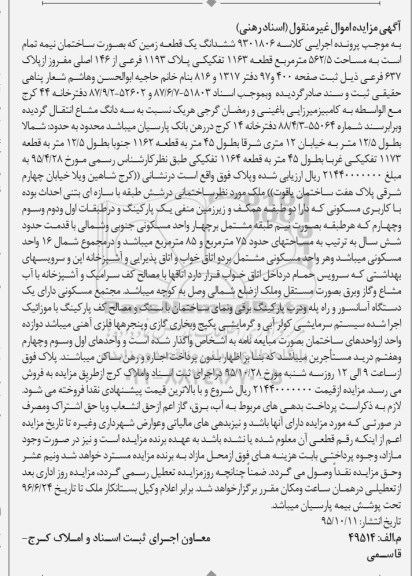 آگهی مزایده اموال غیر منقول (اسناد رهنی)
به موجب پرونده اجرایی کلاسه ۹۳۰۱۸۰۶ ششدانگ یک قطعه زمین که بصورت ساختمان نیمه تمام
است به مساحت ۵۶۲/۵ مترمربع قطعه ۱۱۶۳ تفکیکی پلاک ۱۱۹۳ فرعی از ۱۴۶ اصلی مفروز از پلاک
۶۳۷ فرعی ذیل ثبت صفحه ۴۰۰ و ۹۷ دفتر ۱۳۱۷ و ۸۱۶ بنام خانم حاجیه ابوالحسن وهاشم شعار پناهی
حقیقی ثبت و سند صادر گردیده وبموجب اسناد ۵۱۸۰۳-۸۷/۶/۷ و ۵۲۶۰۲-۸۷/۹/۲ دفترخانه ۴۴ کرج
مع الواسطه به کامبیز میرزایی باغینی و رمضان گرجی هریک نسبت به سه دانگ مشاع انتقال گردیده
وبرابر سند شماره ۵۵۰۶۴-۸۸/۴/۳ دفترخانه ۱۴ کرج در رهن بانک پارسیان میباشد محدود به حدود: شمالا
بطول ۱۲/۵ متر به خیابان ۱۲ متری شرقا بطول ۴۵ متر به قطعه ۱۱۶۲ جنوبا بطول ۱۲/۵ متر به قطعه
۱۱۷۳ تفکیکی غربا بطول ۴۵ متر به قطعه ۱۱۶۴ تفکیکی طبق نظر کارشناس رسمی مورخ ۹۵/۴/۲۸ به
مبلغ ۲۱۴۴۰۰۰۰۰۰۰ ریال ارزیابی شده وپلاک فوق واقع است درنشانی ((کرج شاهین ویلا خیابان چهارم
شرقی پلاک هفت ساختمان یاقوت)) ملک مورد نظر ساختمانی درشش طبقه با سازه ای بتنی احداث بوده
با کاربری مسکونی که دارا دو طبقه همکف و زیرزمین منفی یک پارکینگ و درطبقات اول ودوم وسوم
وچهارم که هرطبقه بصورت نیم طبقه مشتمل برچهار واحد مسکونی جنوبی وشمالی با قدمت حدود
شش سال به ترتیب به مساحتهای حدود ۷۵ مترمربع و ۸۵ مترمربع میباشد و درمجموع شمال ۱۶ واحد
مسکونی میباشد وهر واحد مسکونی مشتمل بردو اتاق خواب و اتاق پذیرایی و آشپزخانه اپن و سرویسهای
بهداشتی که سرویس حمام درداخل اتاق خواب قرار دارد اتاقها با مصالح کف سرامیک و آشپزخانه با آب
مشاع وگاز وبرق بصورت مستقل وملک ازضلع شمالی وصل به کوچه میباشد. مجتمع مسکونی دارای یک
دستگاه آسانسور و راه پله ودرب پارکینگ برقی ونمای ساختمان با سنگ و مصالح کف پارکینگ با موزائیک
اجرا شده سیستم سرمایشی کولر آبی و گرمایشی پکیج وبخاری گازی وپنجرهها فلزی آهنی میباشد دوازده
واحد ازواحدهای ساختمان بصورت مبایعه نامه به اشخاص واگذار شده است و واحدهای اول وسوم وچهارم
وهفتم درید مستأجرین میباشد که بنا بر اظهار بدون پرداخت اجاره و رهن ساکن میباشند. پلاک فوق
ازساعت ۹ الی ۱۲ روز سه شنبه مورخ ۹۵/۱۰/۲۸ دراجرای ثبت اسناد واملاک کرج ازطریق مزایده به فروش
می رسد. مزایده ازقیمت ۲۱۴۴۰۰۰۰۰۰۰ ریال شروع و با بالاترین قیمت پیشنهادی نقدا فروخته می شود.
لازم به ذکراست پرداخت بدهی های مربوط به آب، برق، گاز اعم ازحق انشعاب ویا حق اشتراک ومصرف
در صورتی که مورد مزایده دارای آنها باشد و نیز بدهی های مالیاتی وعوارض شهرداری وغیره تا تاریخ مزایده
اعم از اینکه رقم قطعی آن معلوم شده یا نشده باشد به عهده برنده مزایده است و نیز در صورت وجود
مازاد، وجوه پرداختی بابت هزینه های فوق ازمحل مازاد به برنده مزایده مسترد خواهد شد ونیم عشر
وحق مزایده نقداً وصول می گردد. ضمناً چنانچه روز مزایده تعطیل رسمی گردد، مزایده روز اداری بعد
ازتعطیلی درهمان ساعت ومکان مقرر برگزارخواهد شد. برابر اعلام وکیل بستانکار ملک تا تاریخ ۹۶/۶/۲۴
تحت پوشش بیمه پارسیان میباشد.
تاریخ انتشار: ۹۵/۱۰/۱۱
م الف: ۴۹۵۱۴ معاون اجرای ثبت اسناد و املاک کرج-
قاسمی